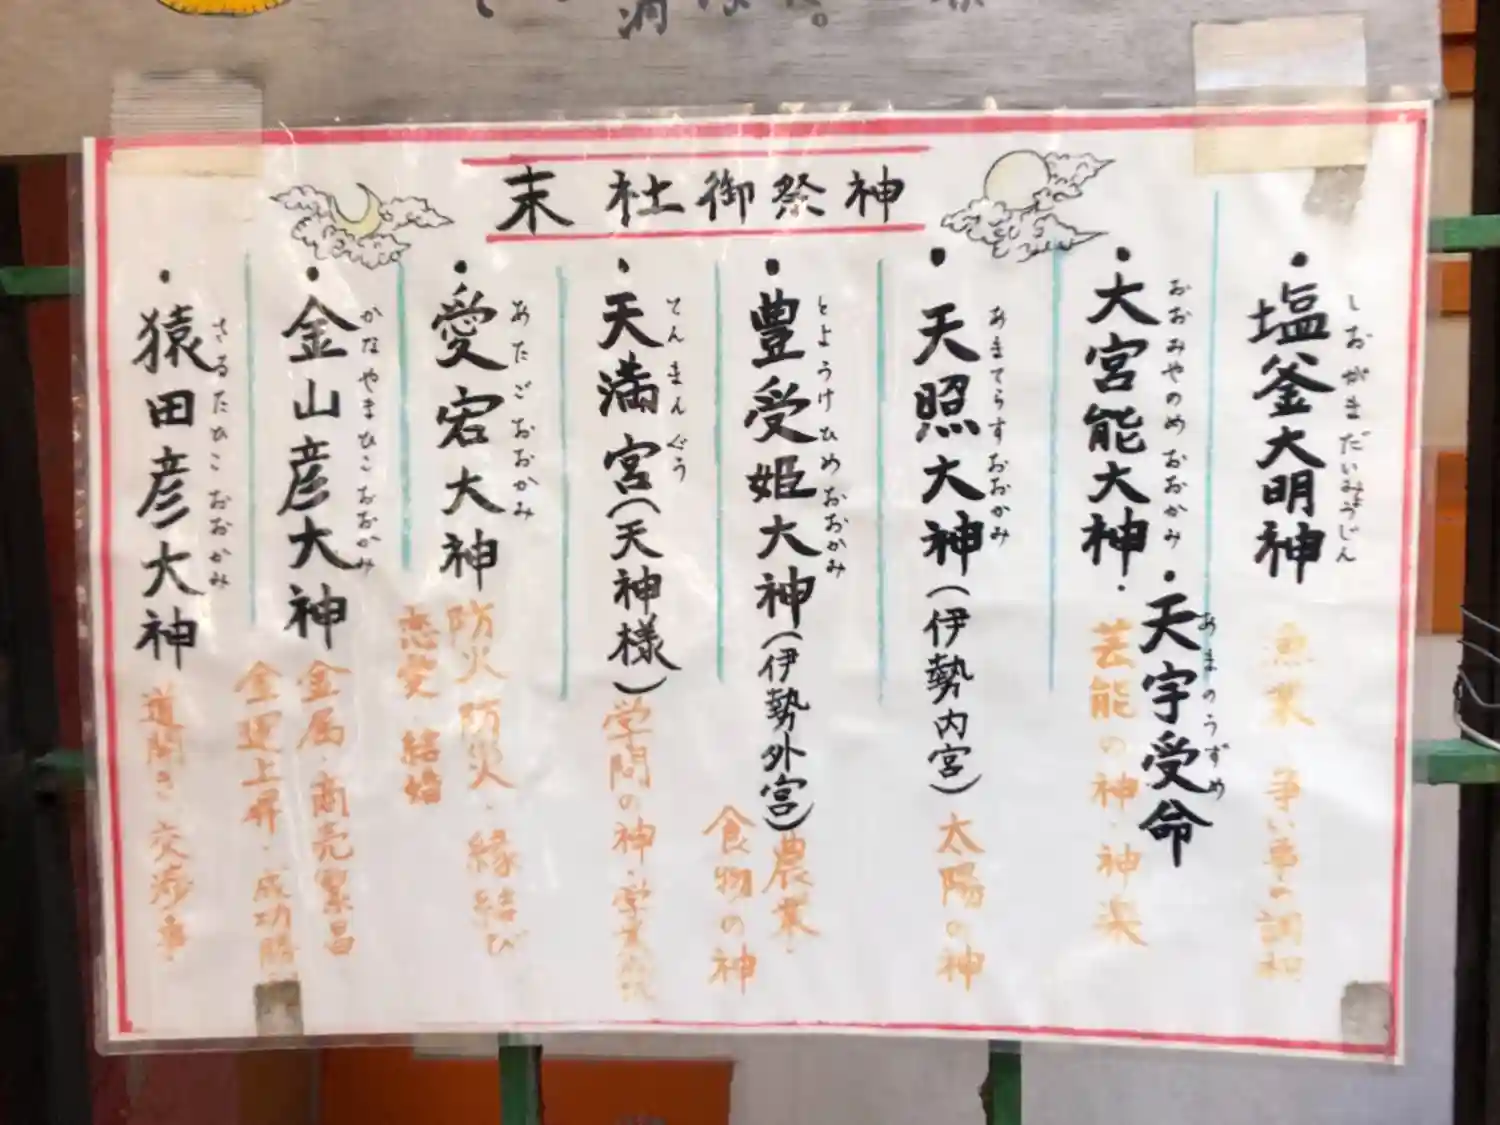 末社御祭神
・塩釜大明神
しおがまだいみょうじん
漁業 争い事の調和
・大宮能大神・
おおみやのめおおかみ
・天宇受命
あまのうずめ
芸能の神・神楽
・天照大神(伊勢内宮)
あまてらすおおかみ
太陽の神
・豊受姫大神(伊勢外宮)
とようけひめおおかみ
農業・
食物の神
・天満宮(天神様)
てんまんぐう
学問の神・学業
・愛宕大神
あたごおおかみ
防火 防災・縁結び
恋愛・結婚
・金山彦大神
かなやまひこおおかみ
金属・商売繁昌
金運上昇・成功勝
・猿田彦大神
さるたひこおおかみ
道開き 交渉事